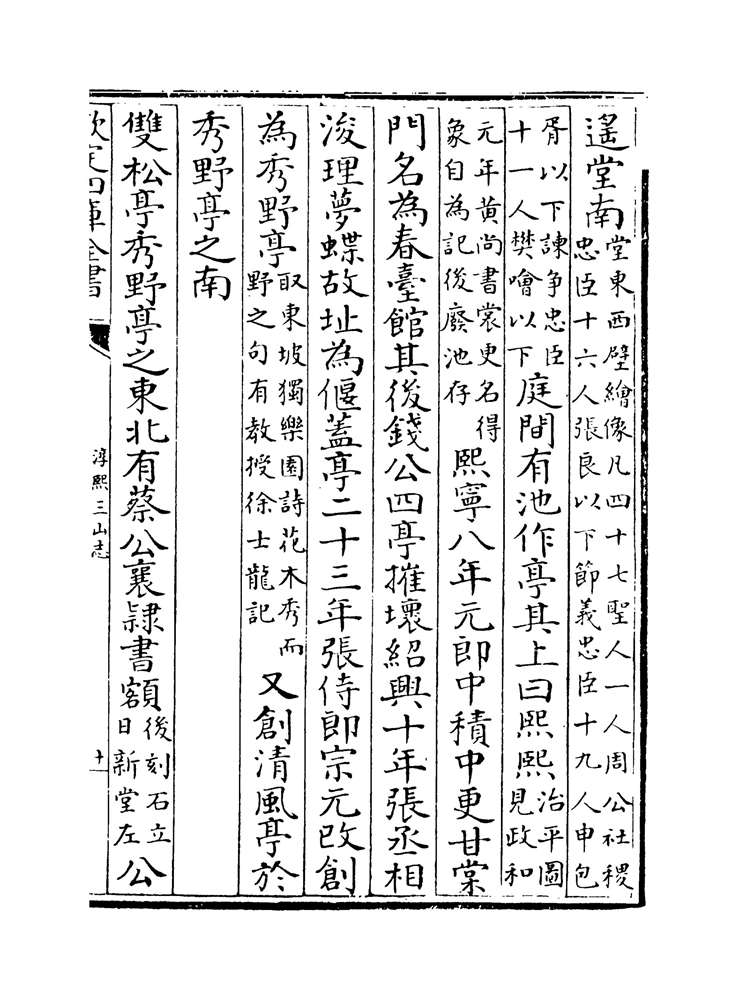 遙堂南堂東西壁繪像凡四十七聖人一人周公社稷忠臣十六人張良以下節義忠臣十九人申包
胥以下諫争忠臣十一人樊噲以下庭間有池作亭其上曰熙熙治平圖見政和
元年黃尚書裳更名得象自為記後廢池存熙寧八年元郎中積中更甘棠
門名為春臺館其後錢公四亭摧壞紹興十年張丞相
浚理夢蝶故址為偃蓋亭二十三年張侍郎宗元改創
為秀野亭取東坡獨樂園詩花木秀而野之句有教授徐士龍記又創清風亭於
秀野亭之南
雙松亭秀野亭之東北有蔡公襄隸書額後刻石立日新堂左公
欽定四庫全書
淳熙三山志
十一